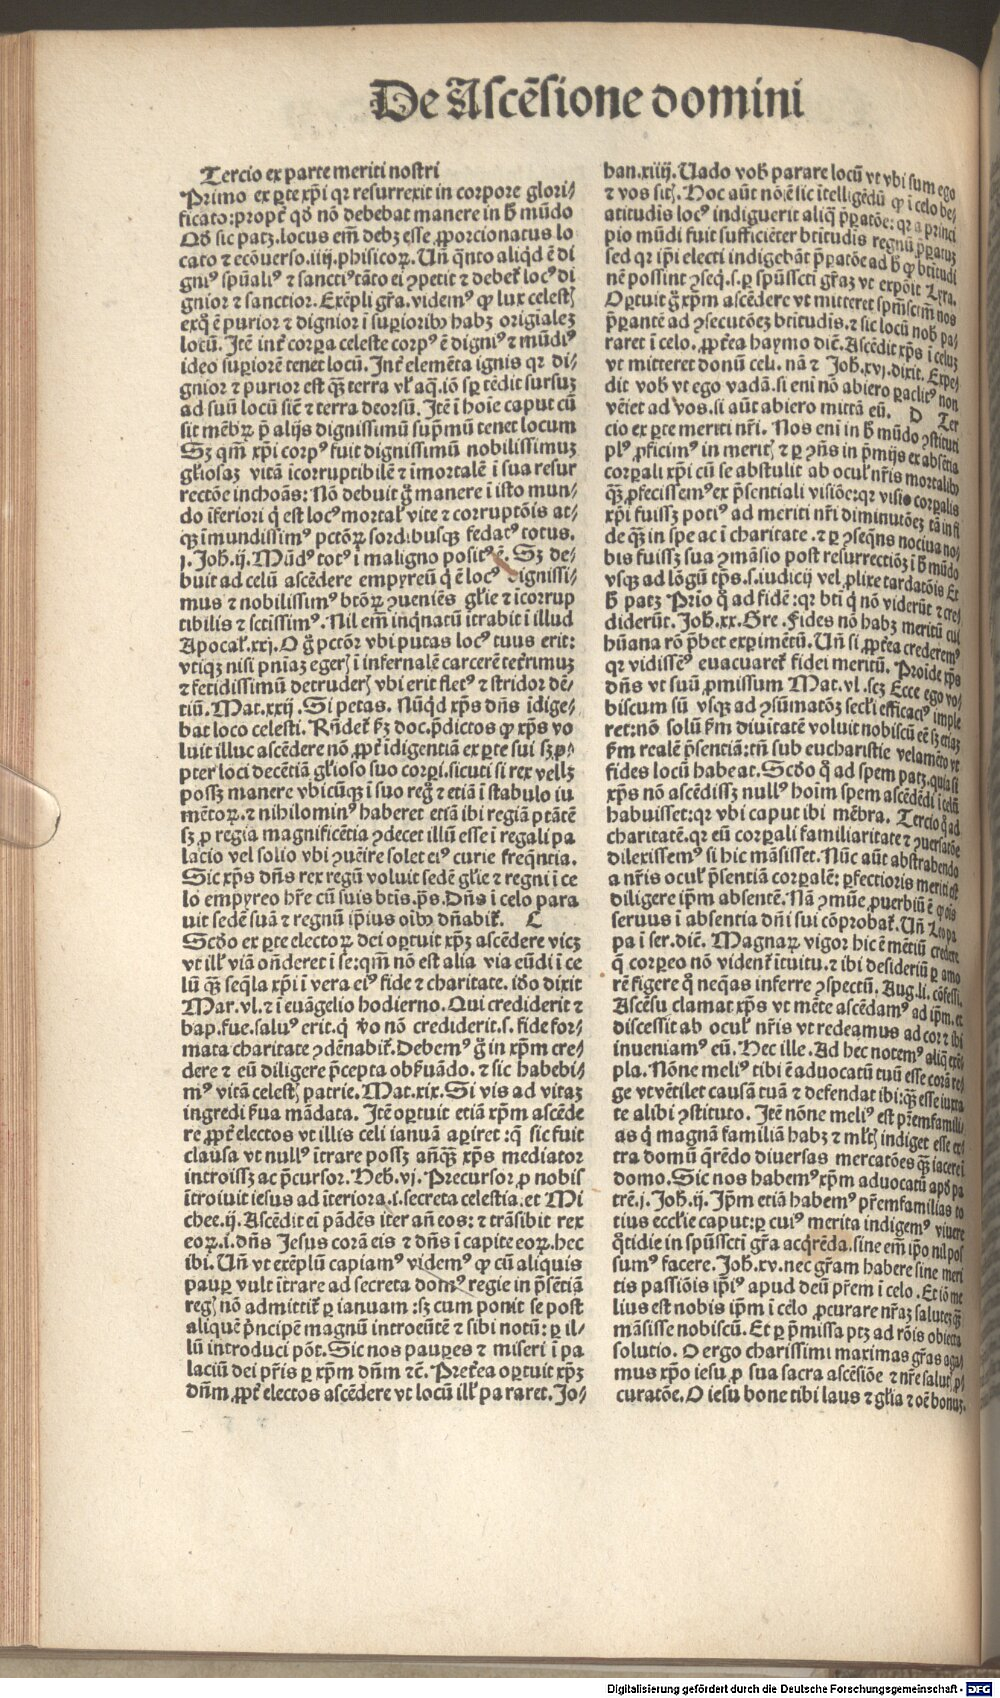 De Ascēsione domini
Tercio ex parte meriti nostri
Primo ex ꝑte xp̄i qr resurrexit in corpore glori⸗
ficato:propt̕ qđ nō debebat manere in ħ mūdo
Qđ sic patꝫ.locus em̄ debꝫ esse ꝓporcionatus lo
cato ⁊ ecōuerso.iiij.phisicoꝝ. Un̄ q̄nto aliqđ ē di
gniꝰ spūaliꝰ ⁊ sanctiꝰtāto ei ꝯpetit ⁊ debet̕ locꝰ di
gnior ⁊ sanctior. Exēpli gr̄a. videmꝰ ꝙ lux celestꝭ
exq̊ ē purior ⁊ dignior ī superioribꝰ habꝫ origialeꝫ
locū. Itē int̕ corꝑa celeste corpꝰ ē digniꝰ ⁊ mūdiꝰ
ideo suꝑiorē tenet locū. Int̕ elemēta ignis qr di⸗
gnior ⁊ purior est qꝫ terra vl̕ aq̄.iō sꝑ tēdit sursuꝫ
ad suū locū sic̄ ⁊ terra deorsū. Itē ī hoīe caput cū
sit mēbꝝ p̄ alijs dignissimū sup̄mū tenet locum
Sꝫ qm̄ xp̄i corpꝰ fuit dignissimū nobilissimuꝫ
gl̕iosaꝫ vitā īcorruptibilē ⁊ īmortalē ī sua resur
rectōe inchoās: Nō debuit ḡ manere ī isto mun⸗
do īferiori q̇ est locꝰ mortal̕ vite ⁊ corruptōis at⸗
qꝫ īmundissimꝰ pctōꝝ sordibusqꝫ fedatꝰ totus.
j. Joh̄.ij. Mūdꝰ totꝰ ī maligno positꝰ ē. Sꝫ de⸗
buit ad celū ascēdere empyreū q̇ ē locꝰ dignissi⸗
mus ⁊ nobilissimꝰ btōꝝ ꝯueniēs gl̕ie ⁊ īcorrup
tibilis ⁊ sctissimꝰ. Nil em̄ inq̄natū ītrabit ī illud
Apocal̕.xxj. O ḡ pctōr vbi putas locꝰ tuus erit:
vtiqꝫ nisi pn̄iaꝫ egerꝭ ī infernalē carcerē tet̕rimuꝫ
⁊ fetidissimū detruderꝭ vbi erit fletꝰ ⁊ stridor dē⸗
tiū. Mat.xxij. Si petas. Nūqd xp̄s dn̄s īdige⸗
bat loco celesti. Rn̄det̕ ẜm doc.p̄dictos ꝙ xp̄s vo
luit illuc ascēdere nō ꝓpt̕ īdigentiā ex ꝑte sui sꝫ ꝓ⸗
pter loci decētiā gl̕ioso suo corꝑi.sicuti si rex vellꝫ
possꝫ manere vbicūqꝫ ī suo regn̊ ⁊ etiā ī stabulo iu
mētoꝝ.⁊ nihilominꝰ haberet etiā ibi regiā ptātē
sꝫ ꝓ regia magnificētia ꝯdecet illū esse ī regali pa
lacio vel solio vbi ꝯuēire solet eiꝰ curie freq̄ntia.
Sic xp̄s dn̄s rex regū voluit sedē gl̕ie ⁊ regni ī ce
lo empyreo hr̄e cū suis btīs.p̄s. Dn̄s ī celo para
uit sedē suā ⁊ regnū ip̄ius oībꝰ dn̄abit̕. C
Scđo ex ꝑte electoꝝ dei oꝑtuit xp̄ꝫ ascēdere vicꝫ
vt ill̕ viā on̄deret ī se:qm̄ nō est alia via eūdi ī ce
lū qꝫ seq̄la xp̄i ī vera eiꝰ fide ⁊ charitate. iđo dixit
Mar.vl.⁊ ī euāgelio hodierno. Qui crediderit ⁊
bap.fue.saluꝰ erit.q̇ v̊o nō crediderit.s. fide for⸗
mata charitate ꝯdēnabit̕. Debemꝰ ḡ in xp̄m cre⸗
dere ⁊ eū diligere p̄cepta obẜuādo.⁊ sic habebi⸗
mꝰ vitā celestꝭ patrie. Mat.xix. Si vis ad vitaꝫ
ingredi ẜua mādata. Itē oꝑtuit etiā xp̄m ascēde
re ꝓpt̕ electos vt illis celi ianuā aꝑiret :q̄ sic fuit
clausa vt nullꝰ ītrare possꝫ an̄qꝫ xp̄s mediator
introissꝫ ac p̄cursor. Heb̄.vj. Precursor ꝓ nobis
ītroiuit iesus ad īteriora.i.secreta celestia.et Mi
chee.ij. Ascēdit ei pādēs iter an̄ eos: ⁊ trāsibit rex
eoꝝ.i.dn̄s Jesus corā eis ⁊ dn̄s ī capite eoꝝ.hec
ibi. Un̄ vt exēplū capiamꝰ videmꝰ ꝙ cū aliquis
pauꝑ vult ītrare ad secreta domꝰ regie in p̄sētiā
regꝭ nō admittit̕ ꝑ ianuam :sꝫ cum ponit se post
aliquē p̄ncipē magnū introeūtē ⁊ sibi notū: ꝑ il⸗
lū introduci pōt. Sic nos pauꝑes ⁊ miseri ī pa
laciū dei pr̄is ꝑ xp̄m dn̄m ⁊c̄. Pret̕ea oꝑtuit xp̄ꝫ
dn̄m ꝓpt̕ electos ascēdere vt locū ill̕ pararet. Jo⸗
han.xiiij. Uado vob̄ parare locū vt vbi sum ego
⁊ vos sitꝭ. Hoc aūt nō ē sic ītelligēdū ꝙ ī celo be⸗
atitudis locꝰ indiguerit aliq̄ p̄ꝑatōe: qr a princi
pio mūdi fuit sufficiēter btitudis regnū p̄ꝑatuꝫ
sed qr ip̄i electi indigebāt p̄ꝑatōe ad ħ ꝙ btitudi
nē possint ꝯseq̄.s.ꝑ spūsscti gr̄aꝫ vt expōit Lyra.
Oꝑtuit ḡ xp̄m ascēdere vt mitteret spm̄sctm̄ nos
p̄ꝑantē ad ꝯsecutōeꝫ btitudis.⁊ sic locū nob̄ pa⸗
raret ī celo. ꝓpt̕ea haymo diē. Ascēdit xp̄s ī celuꝫ
vt mitteret donū celi. nā ⁊ Joh̄.xvj.dixit. Expe⸗
dit vob̄ vt ego vadā.si eni nō abiero ꝑaclitꝰ non
vēiet ad vos.si aūt abiero mittā eū. D Ter
cio ex ꝑte meriti nr̄i. Nos eni in ħ mūdo ꝯstituti
plꝰ ꝓficimꝰ in meritꝭ ⁊ ꝑ ꝯn̄s in p̄mijs ex absētia
corꝑali xp̄i cū se abstulit ab ocul̕ nr̄is mortalibꝰ
qꝫ ꝓfecissemꝰ ex p̄sentiali visiōe:qr visio corꝑalis
xp̄i fuissꝫ potiꝰ ad meriti nr̄i diminutōeꝫ tā in fi
de qꝫ in spe ac ī charitate.⁊ ꝑ ꝯseq̄ns nociua no⸗
bis fuissꝫ sua ꝯmāsio post resurrectiōꝫ ī ħ mūdo
vsqꝫ ad lōgū tp̄s.s.iudicij vel ꝓlixe tardatōis Et
ħ patꝫ Prio q̊ ad fidē: qr bti q̇ nō viderūt ⁊ cre⸗
diderūt. Joh̄.xx. Gre. Fides nō habꝫ meritū cui
hūana rō p̄bet exꝑimētū. Un̄ si ꝓpt̕ea crederemꝰ
qr vidissēꝰ euacuaret̕ fidei meritū. Proide xp̄s
dn̄s vt suū ꝓmissum Mat.vl.scꝫ Ecce ego vo⸗
biscum sū vsqꝫ ad ꝯsūmatōꝫ secl̕i efficaciꝰ imple
ret:nō solū ẜm diuitatē voluit nobiscū eē sꝫ etiaꝫ
ẜm realē p̄sentiā:tn̄ sub eucharistie velamēto vt
fides locū habeat. Scđo q̊ ad spem patꝫ.quia si
xp̄s nō ascēdissꝫ nullꝰ hoīm spem ascēdēdi ī celū
habuisset:qr vbi caput ibi mēbra. Tercio q̊ ad
charitatē.qr eū corꝑali familiaritate ⁊ ꝯuersatōe
dilexissemꝰ si hic māsisset. Nūc aūt abstrahendo
a nr̄is ocul̕ p̄sentiā corꝑalē: ꝑfectioris meriti est
diligere ip̄m absentē. Nā ꝯmūe ꝓuerbiū ē ꝙ oīs
seruus ī absentia dn̄i sui cōprobat̕. Un̄ Leo pa
pa ī ser.diē. Magnaꝝ vigor hic ē mētiū credere
q̄ corꝑeo nō vident̕ ītuitu.⁊ ibi desideriū ꝑ amo
rē figere q̊ neq̄as inferre ꝯspectū. Aug.li.cōfessi.
Ascēsu clamat xp̄s vt mēte ascēdamꝰ ad ip̄m.et
discessit ab ocul̕ nr̄is vt redeamus ad cor ⁊ ibi
inueniamꝰ eū. Hec ille. Ad hec notemꝰ aliq̄ exē⸗
pla. Nōne meliꝰ tibi ē aduocatū tuū esse corā re⸗
ge vt vētilet causā tuā ⁊ defendat ibi:qꝫ esse iuxta
te alibi ꝯstituto. Itē nōne meliꝰ est pr̄emfamili⸗
as q̇ magnā familiā habꝫ ⁊ ml̕tꝭ indiget esse ex⸗
tra domū q̄rēdo diuersas mercatōes qꝫ iacere ī
domo. Sic nos habemꝰ xp̄m aduocatū apđ pa
trē.j. Joh̄.ij. Ip̄m etiā habemꝰ pr̄emfamilias to
tius eccl̕ie caput:ꝑ cuiꝰ merita indigemꝰ viuere
q̊tidie in spūsscti gr̄a acq̄rēda.sine em̄ ip̄o nil pos
sumꝰ facere. Joh̄.xv.nec gr̄am habere sine meri
tis passiōis ip̄iꝰ apud deū pr̄em ī celo. Et iō me
lius est nobis ip̄m ī celo ꝓcurare nr̄aꝫ saluteꝫ qꝫ
māsisse nobiscū. Et ꝑ p̄missa ptꝫ ad rōis obiecta
solutio. O ergo charissimi maximas gr̄as aga⸗
mus xp̄o iesu ꝓ sua sacra ascēsiōe ⁊ nr̄e salutꝭ ꝓ⸗
curatōe. O iesu bone tibi laus ⁊ gl̕ia ⁊ oē bonuꝫ.
Digitalisierung gefördert durch die Deutsche Forschungsgemeinschaft - DFG